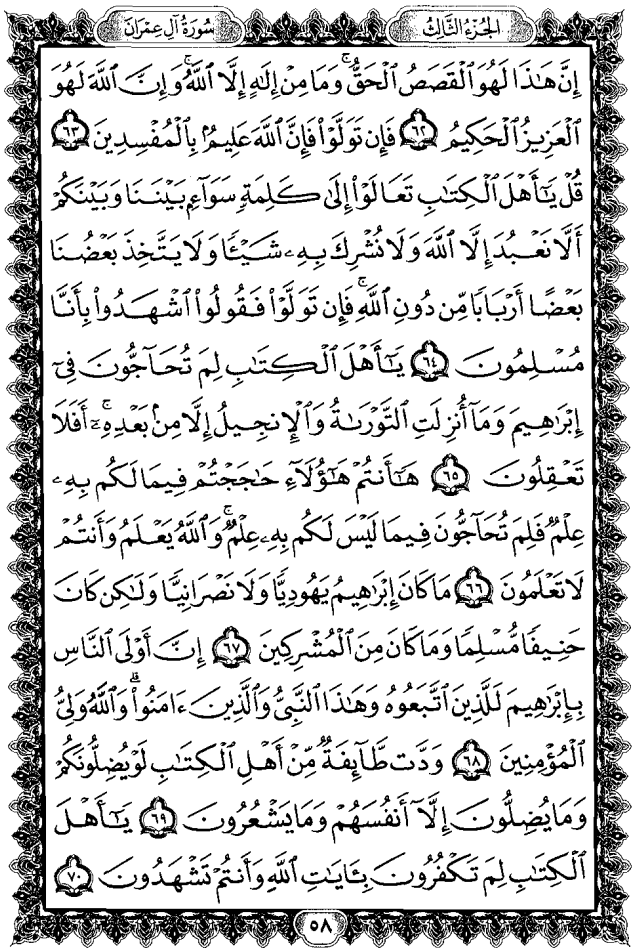 الجُزْءُ الثَّالِثُ
سُورَةُ آلِ عِمْرَانَ
إِنَّ هَٰذَا لَهُوَ ٱلْقَصَصُ ٱلْحَقُّ ۚ وَمَا مِنْ إِلَٰهٍ إِلَّا ٱللَّهُ ۚ وَإِنَّ ٱللَّهَ لَهُوَ
ٱلْعَزِيزُ ٱلْحَكِيمُ ٦٢ فَإِن تَوَلَّوْا۟ فَإِنَّ ٱللَّهَ عَلِيمٌۢ بِٱلْمُفْسِدِينَ ٦٣
قُلْ يَٰٓأَهْلَ ٱلْكِتَٰبِ تَعَالَوْا۟ إِلَىٰ كَلِمَةٍ سَوَآءٍۭ بَيْنَنَا وَبَيْنَكُمْ
أَلَّا نَعْبُدَ إِلَّا ٱللَّهَ وَلَا نُشْرِكَ بِهِۦ شَيْـًٔا وَلَا يَتَّخِذَ بَعْضُنَا
بَعْضًا أَرْبَابًا مِّن دُونِ ٱللَّهِ ۚ فَإِن تَوَلَّوْا۟ فَقُولُوا۟ ٱشْهَدُوا۟ بِأَنَّا
مُسْلِمُونَ ٦٤ يَٰٓأَهْلَ ٱلْكِتَٰبِ لِمَ تُحَآجُّونَ فِىٓ
إِبْرَٰهِيمَ وَمَآ أُنزِلَتِ ٱلتَّوْرَىٰةُ وَٱلْإِنجِيلُ إِلَّا مِنۢ بَعْدِهِۦٓ ۚ أَفَلَا
تَعْقِلُونَ ٦٥ هَٰٓأَنتُمْ هَٰٓؤُلَآءِ حَٰجَجْتُمْ فِيمَا لَكُم بِهِۦ
عِلْمٌ فَلِمَ تُحَآجُّونَ فِيمَا لَيْسَ لَكُم بِهِۦ عِلْمٌ ۚ وَٱللَّهُ يَعْلَمُ وَأَنتُمْ
لَا تَعْلَمُونَ ٦٦ مَا كَانَ إِبْرَٰهِيمُ يَهُودِيًّا وَلَا نَصْرَانِيًّا وَلَٰكِن كَانَ
حَنِيفًا مُّسْلِمًا وَمَا كَانَ مِنَ ٱلْمُشْرِكِينَ ٦٧ إِنَّ أَوْلَى ٱلنَّاسِ
بِإِبْرَٰهِيمَ لَلَّذِينَ ٱتَّبَعُوهُ وَهَٰذَا ٱلنَّبِىُّ وَٱلَّذِينَ ءَامَنُوا۟ ۗ وَٱللَّهُ وَلِىُّ
ٱلْمُؤْمِنِينَ ٦٨ وَدَّت طَّآئِفَةٌ مِّنْ أَهْلِ ٱلْكِتَٰبِ لَوْ يُضِلُّونَكُمْ
وَمَا يُضِلُّونَ إِلَّآ أَنفُسَهُمْ وَمَا يَشْعُرُونَ ٦٩ يَٰٓأَهْلَ
ٱلْكِتَٰبِ لِمَ تَكْفُرُونَ بِـَٔايَٰتِ ٱللَّهِ وَأَنتُمْ تَشْهَدُونَ ٧٠
٥٨